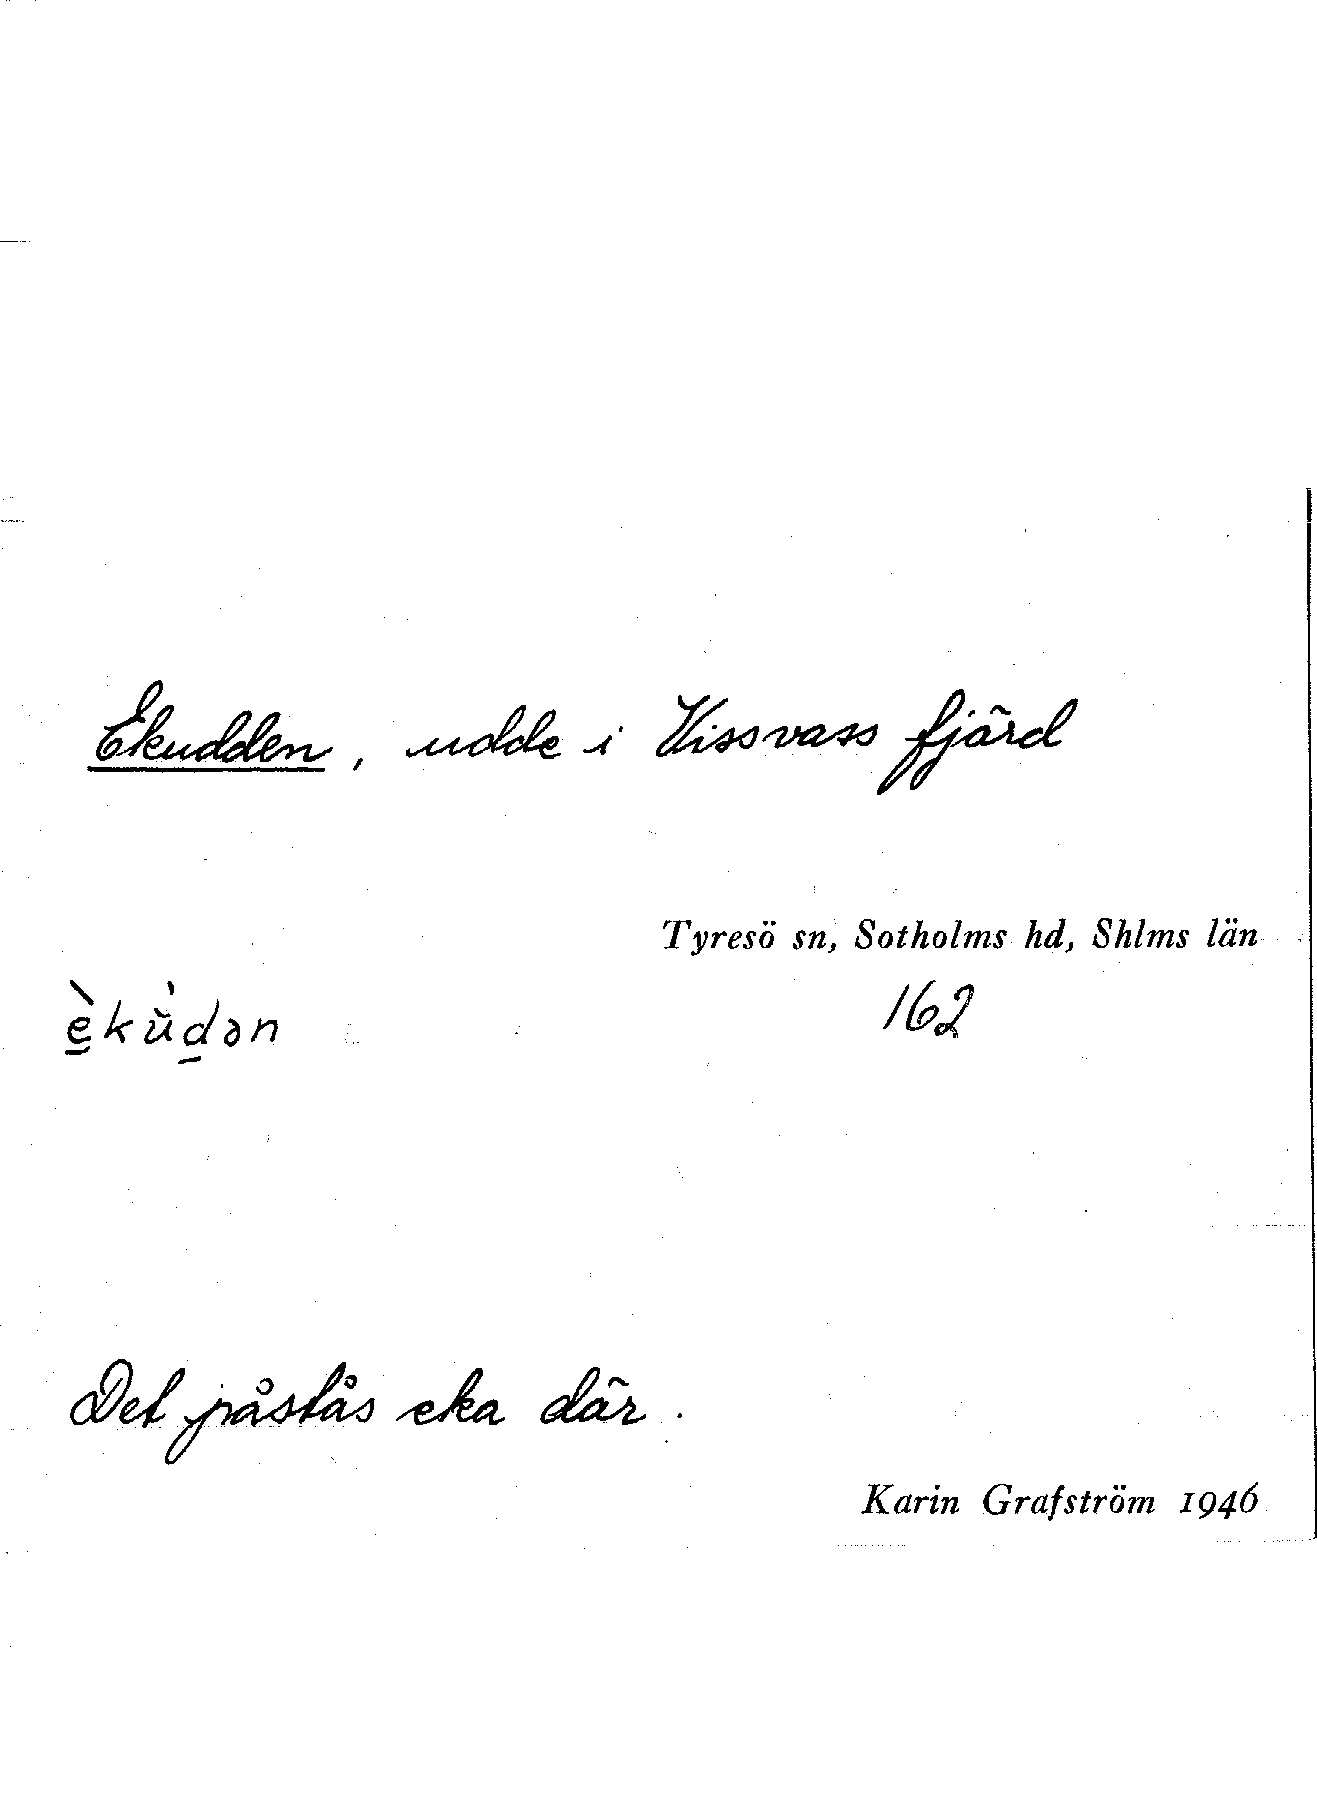 Ekudden, udde i Vissvass fjärd
Tyresö sn, Sotholms hd, Shlms län
è̱kùḏən
162
Det påstås eka där.
Karin Grafström 1946